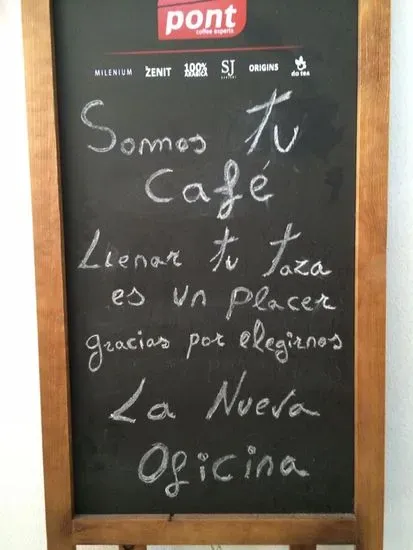 pont
coffee experts
MILENIUM ZENIT 100% ARABICA SJ ORIGINS do tea
Somos tu
café
Llenar tu taza
es un placer
gracias por elegirnos
La Nueva
Oficina